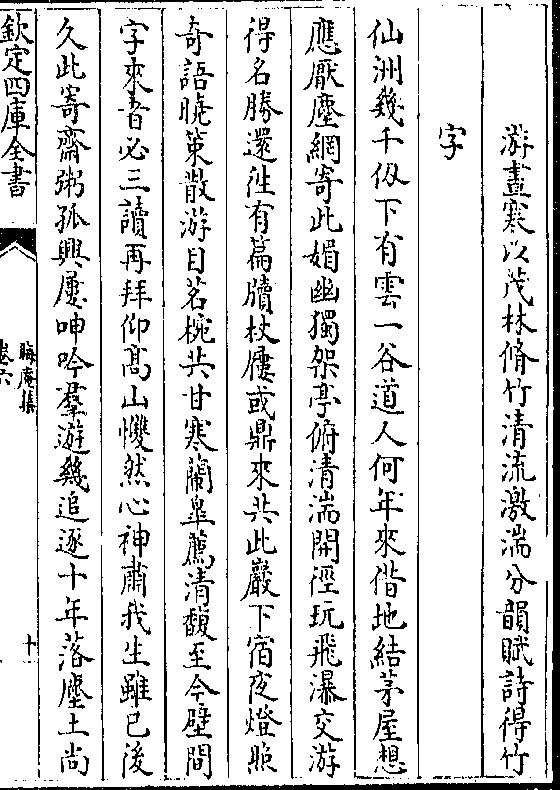 游晝寒以茂林脩竹清流激湍分韻賦詩得竹
字
仙洲幾千仭下有雲一谷道人何年來借地結茅屋想
應厭塵網寄此媚幽獨架亭俯清湍開徑玩飛瀑交游
得名勝還徃有篇牘杖屨或鼎來共此巖下宿夜燈照
奇語曉策散游目茗椀共甘寒蘭臯薦清馥至今壁間
字來者必三讀再拜仰髙山慨然心神肅我生雖已後
久此寄齋粥孤興屢呻吟羣遊幾追逐十年落塵土尚
欽定四庫全書
晦庵集
卷六
十